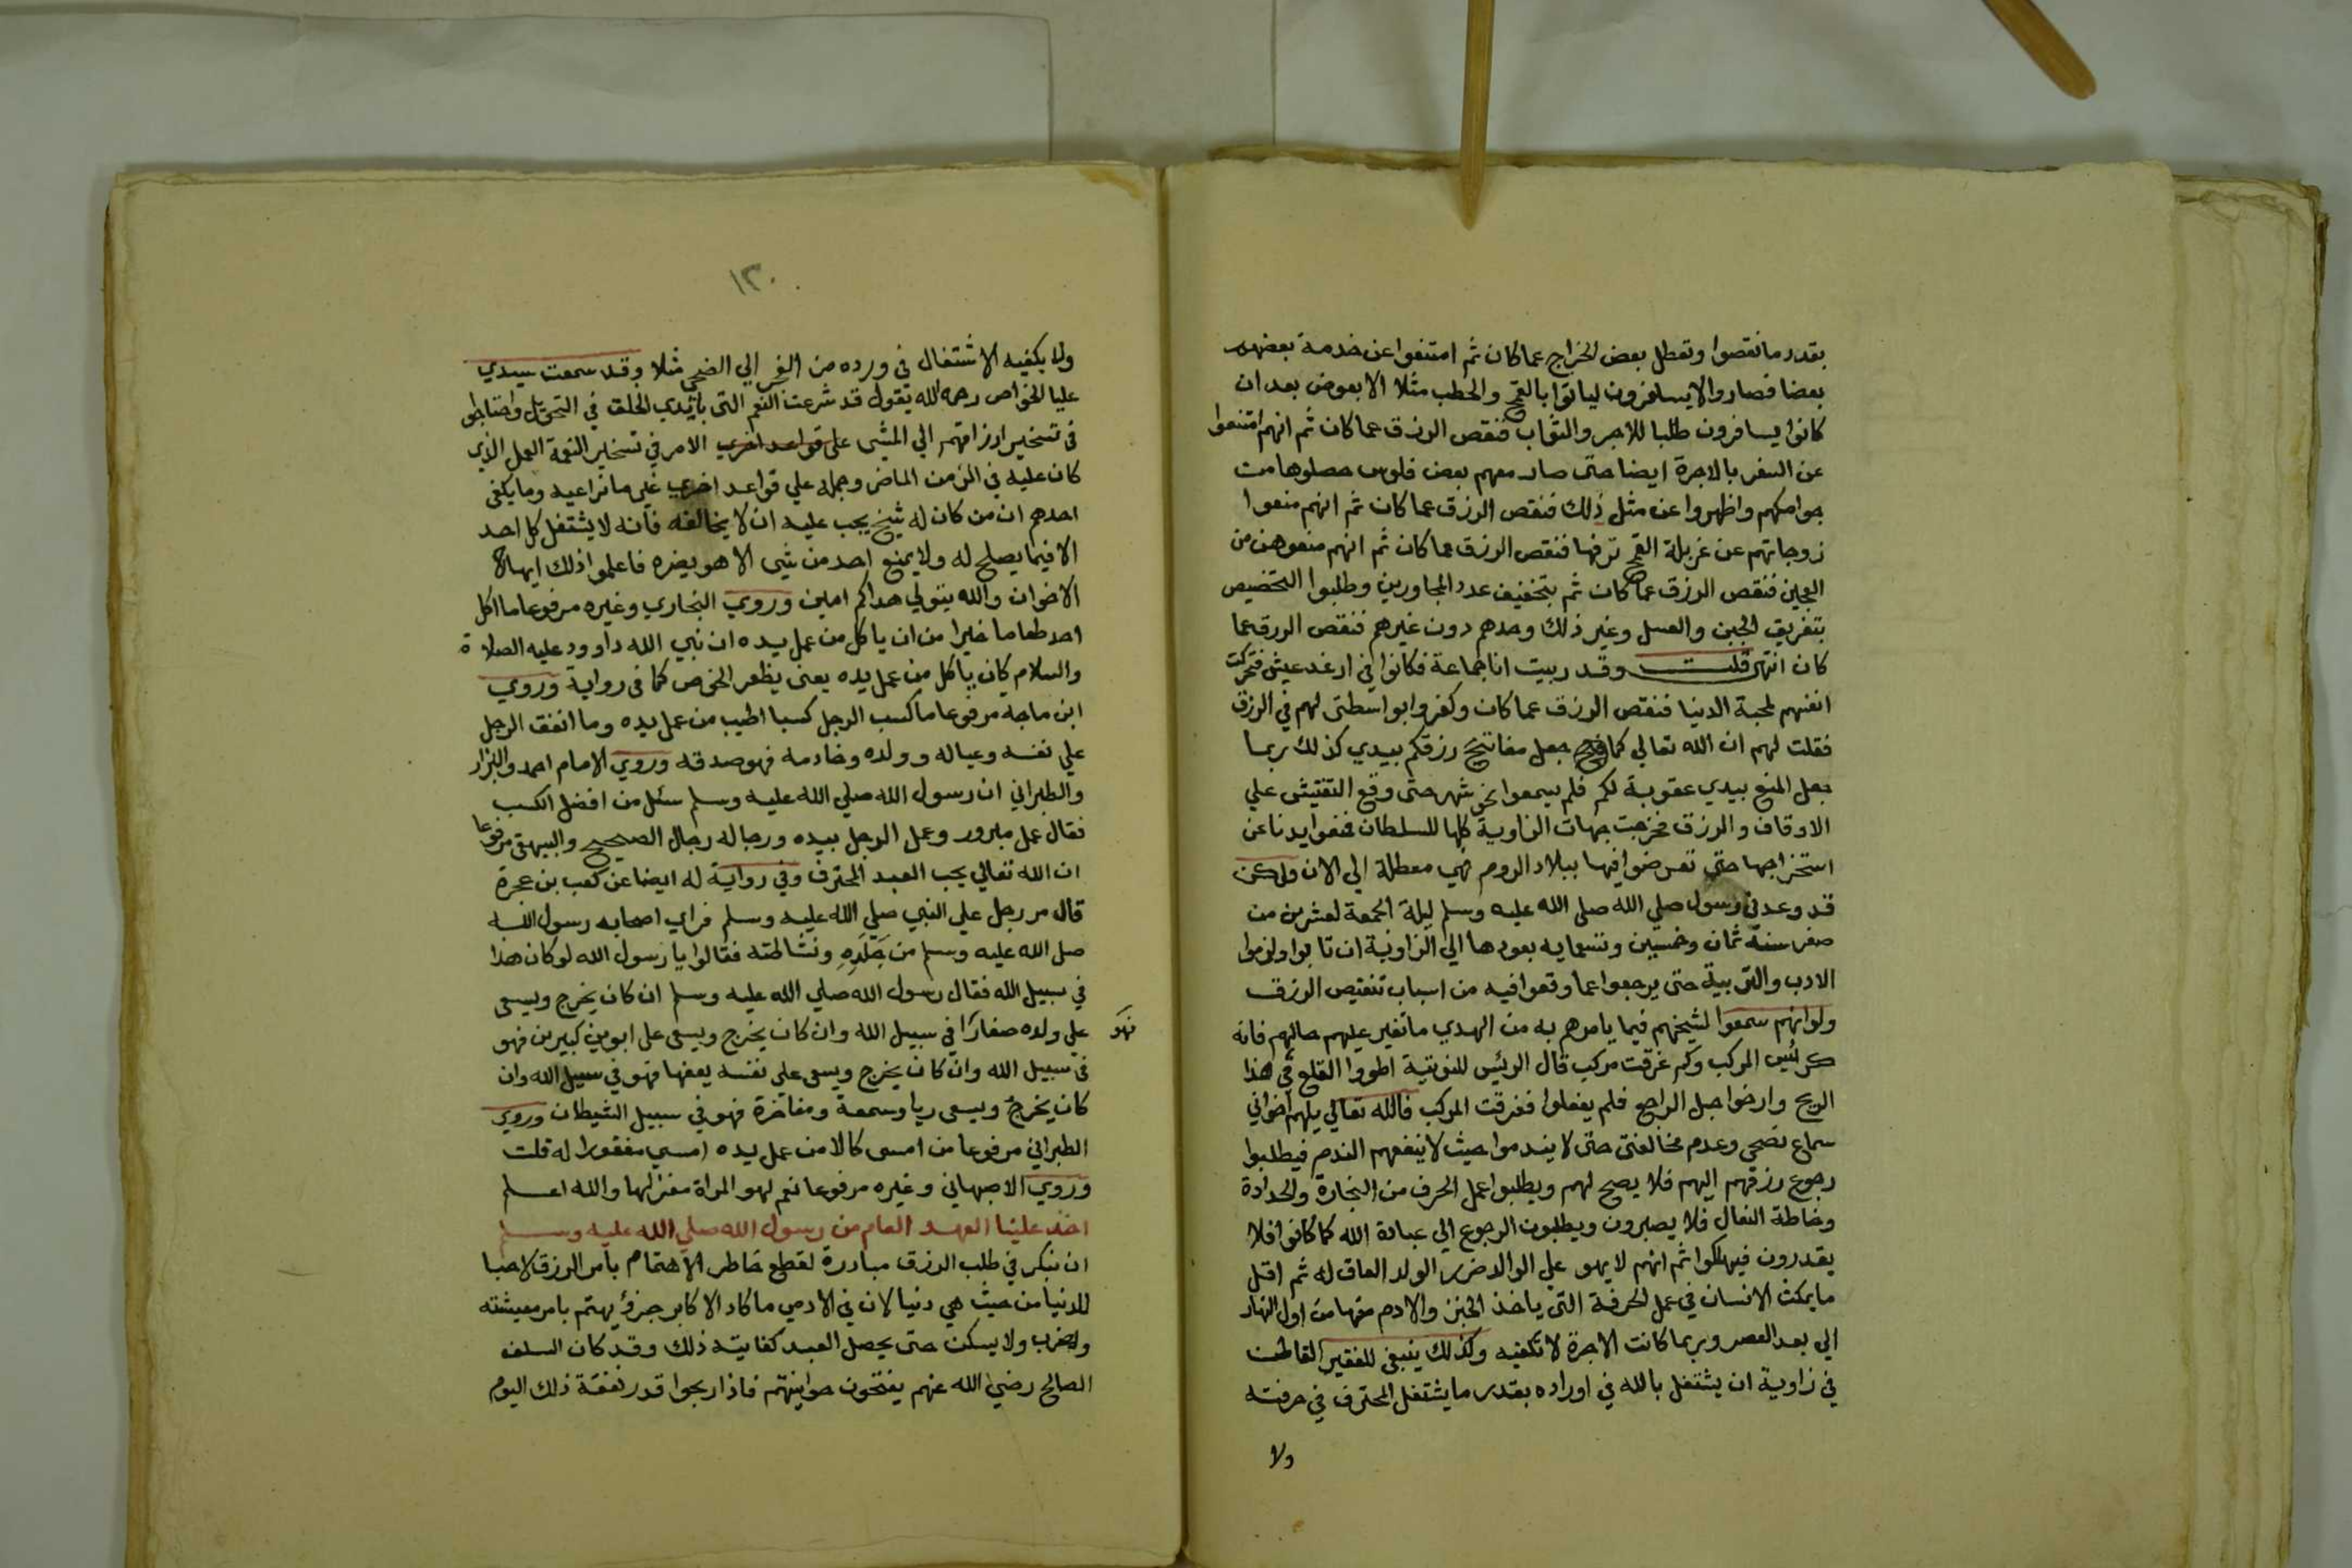 بقدر ما نقصوا وتعطل بعض الخراج عما كان ثم امتنعوا عن خدمة بعضهم
بعضا فصاروا لا يسافرون لياتوا بالقمح والحطب مثلا الا بعوض بعد ان
كانوا يسافرون طلبا للاجر والثواب فنقص الرزق عما كان ثم انهم امتنعوا
عن السفر بالاجرة ايضا حتى صار معهم بعض فلوس حصلوها من
جوامكهم واظهروا عن مثل ذلك فنقص الرزق عما كان ثم انهم منعوا
زوجاتهم عن غربلة القمح ترفها فنقص الرزق عما كان ثم انهم منعوهن من
العجين فنقص الرزق عما كان ثم بتخفيف عدد المجاورين وطلبوا التخصيص
بتفريق الجبن والعسل وغير ذلك وحدهم دون غيرهم فنقص الورق عما
كان انتهى قلت وقد ربيت انا جماعة فكانوا في ارغد عيش فتحركت
انفسهم لمحبة الدنيا فنقص الرزق عما كان وكفروا بواسطتى لهم في الرزق
فقلت لهم ان الله تعالي كما جعل مفاتيح رزقكم بيدي كذلك ربما
جعل المنع بيدي عقوبة لكم فلم يسمعوا نحو شهر حتى وقع التفتيش علي
الاوقاف والرزق فخرجت جهات الزاوية كلها للسلطان فمنعوا يدنا عن
استخراجها حتى تعرضوا فيها ببلاد الروم فهي معطلة الي الان ولكن
قد وعدني رسول صلي الله صلى الله عليه وسلم ليلة الجمعة لعشرين من
صفر سنة ثمان وخمسين وتسعمايه بعودها الي الزاوية ان تابوا ولزموا
الادب والتربية حتى يرجعوا عما وقعوا فيه من اسباب تنقيص الرزق
ولو انهم سمعوا لشيخهم فيما يامرهم به من الهدي ما تغير عليهم حالهم فانه
كرئيس المركب وكم غرقت مركب قال الرئيس للنوتية اطووا القلع في هذا
الريح وارخوا حبل الراجع فلم يفعلوا فغرقت المركب فالله تعالي يلهم اخواني
سماع نصحي وعدم مخالفتى حتى لا يندموا حيث لا ينفعهم الندم فيطلبوا
رجوع رزقهم اليهم فلا يصح لهم ويطلبوا عمل الحرف من النجارة والحدادة
وخاطة النعال فلا يصبرون ويطلبون الرجوع الي عبادة الله كما كانوا فلا
يقدرون فيهلكوا ثم انهم لا يهو علي الوالد ضرر الولد العاق له ثم اقل
ما يمكث الانسان في عمل الحرفة التى ياخذ الخبز والادم منها من اول النهار
الي بعد العصر وربما كانت الاجرة لا تكفيه وكذلك ينبغي للفقير القاطن
في زاوية ان يشتغل بالله في اوراده بقدر ما يشتغل المحترف في حرفته
ولا
١٣٠
ولا يكفيه الاشتغال في ورده من الفجر الي الضحى مثلا وقد سمعت سيدي
عليا الخواص رحمه الله يقول قد شرعت النعم التى بايدي الخلق في التحويل واحتاطوا
في تسخير ارزاقهم الي المشى على قواعد اخري الامر في تسخير النعمة العمل الذي
كان عليه في الزمن الماض وحمله علي قواعد اخري غير ما نراعيه وما يكفي
احدهم ان من كان له شيخ يجب عليه ان لا يخالفه فانه لا يشتغل كل احد
الا فيما يصلح له ولا يمنع احد من شي الا هو يضره فاعلموا ذلك ايها
الاخوان والله يتولي هداكم امين وروي البخاري وغيره مرفوعا ما اكل
احد طعاما خيرا من ان ياكل من عمل يده ان نبي الله داوود عليه الصلاة
والسلام كان ياكل من عمل يده يعنى يظفر الخوص كما في رواية وروي
ابن ماجه مرفوعا ما كسب الرجل كسبا اطيب من عمل يده وما انفق الرجل
علي نفسه وعياله وولده وخادمه فهو صدقه وروي الامام احمد والبزار
والطبراني ان رسول الله صلي الله عليه وسلم سئل من افضل الكسب
فقال عمل مبرور وعمل الرجل بيده ورجاله رجال الصحيح والبيهقى مرفوعا
ان الله تعالي يحب العبد المحترف وفي رواية له ايضا عن كعب بن عجرة
قال مر رجل علي النبي صلي الله عليه وسلم فراي اصحابه رسول الله
صلى الله عليه وسلم من جلده ونشاطته فقالوا يا رسول الله لو كان هذا
في سبيل الله فقال رسول الله صلي الله عليه وسلم ان كان يخرج ويسعى
علي ولده صغارا في سبيل الله وان كان يخرج ويسعى على ابوين كبيرين فهو
فهو
في سبيل الله وان كان يخرج ويسعى على نفسه يعفها فهو في سبيل الله وان
كان يخرج ويسعى ريا وسمعة ومفاخرة فهو في سبيل الشيطان وروي
الطبراني مرفوعا من امسى كالا من عمل يده امسي مغفورا له قلت
وروي الاصبهاني وغيره مرفوعا نعم لهو المراة مغزلها والله اعلم
اخذ علينا العهد العام من رسول الله صلي الله عليه وسلم
ان نبكر في طلب الرزق مبادرة لقطع خاطر الاهتمام بامر الرزق لا حبا
للدنيا من حيث هي دنيا لان في الادمي ما كاد الاكابر جزؤ يهتم بامر معيشته
ولا يسكن حتى يحصل العبد كفايته ذلك وقد كان السلف
الصالح رضي الله عنهم يفتحون حوانيتهم فاذا ربحوا قدر نفقة ذلك اليوم